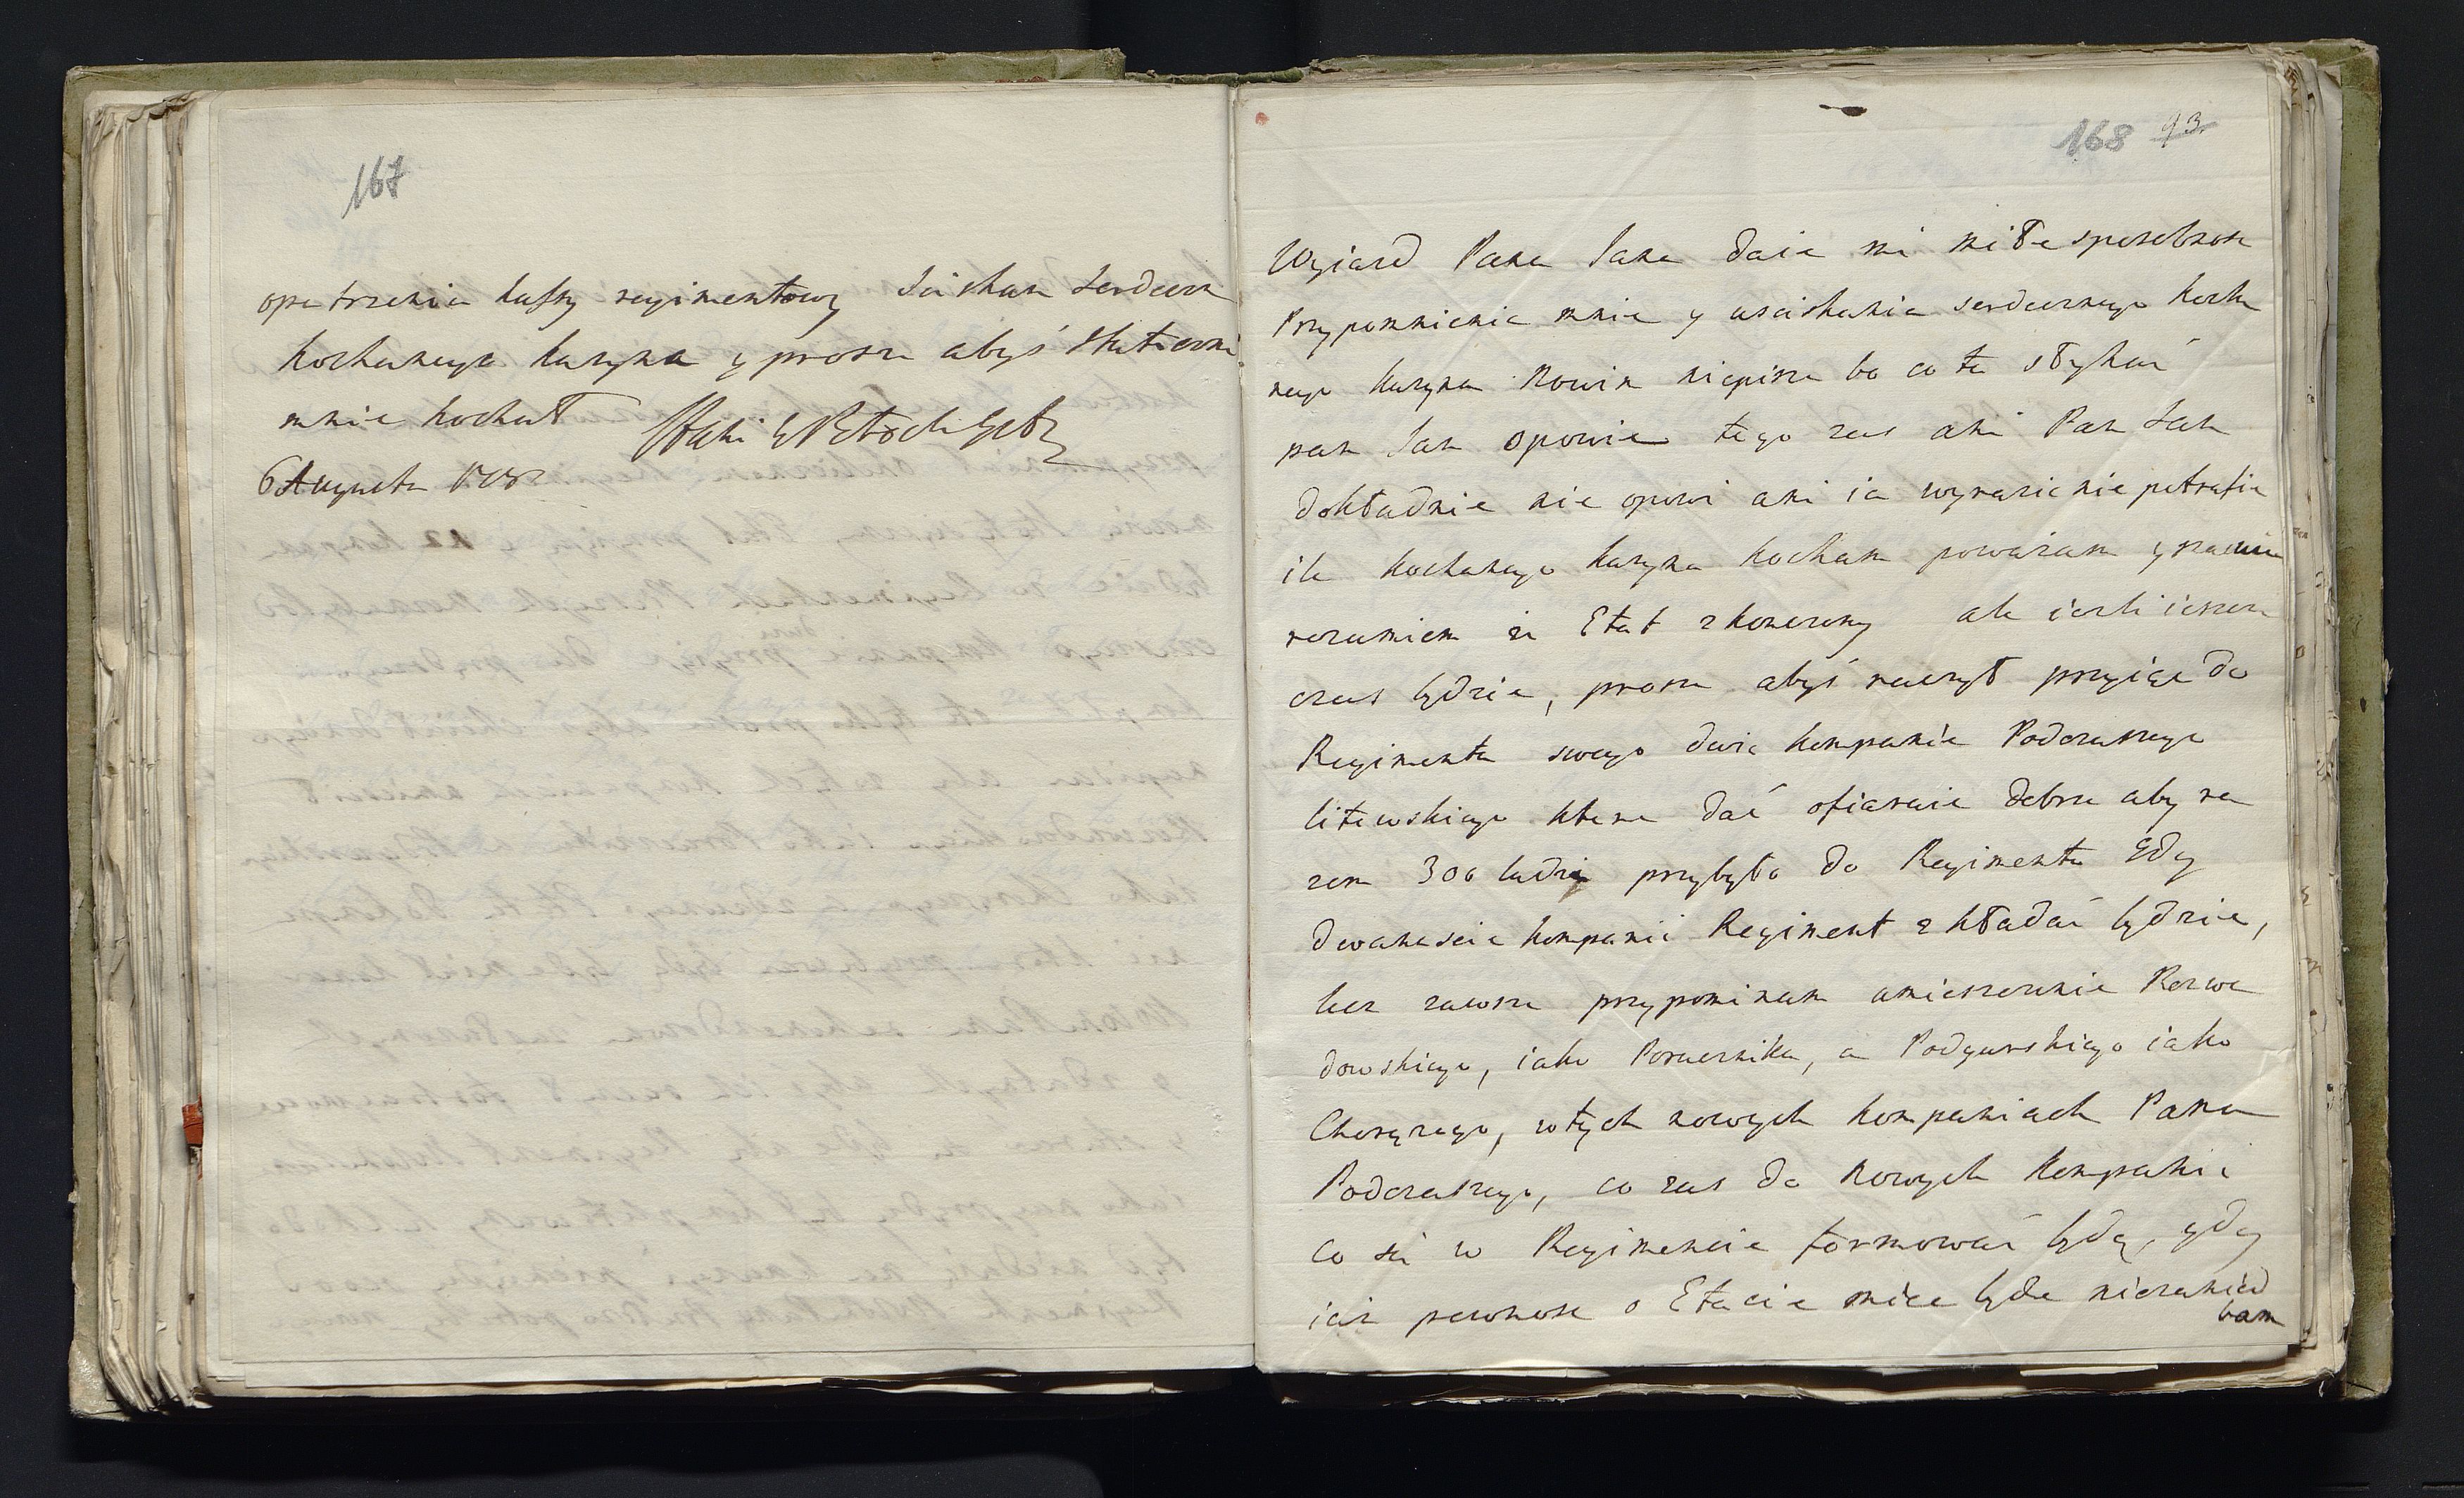 167
opatrzenia kassy regimentowy Sciskam serdeczn
kochanego kuzyna y prosze abyś stateczni
mnie kochał Stani Potocki
6 Augusta
168 93
Wyiazd Pana Jana daie mi miłe sposobnosc
Przypomnienia mnie y usciskania serdecznego kocha
nego kuzyna Nowin niepisze bo co tu słychać
pan Jan opowie tego zas ani Pan Jan
dokładnie nie opowi ani ia wyrazic nie potrafie
ile kochanego kuzyna kocham powazam y
rozumiem ze Etat skonczony ale iezli ieszcze
czas będzie, prosze abyś raczył przyiąc do
Regimentu swego dwie kompanie Podczaszego
litewskiego ktore dać ofiaruie dobrze aby ra
zem 300 ludzi przybyło do Regimentu gdy
dwanascie kompanii Regiment składać będzie,
lecz zawsze przypominam umieszczenie Rozwa
dowskiego, iako Porucznika, a Podgurskiego iako
Chorązego, w tych nowych kompaniach Pana
Podczaszego, co zas do Nowych Kompanii
co sie w Regimencie formować będą, gdy
iuz pewnosc o Etacie miec będe niezanied
bam